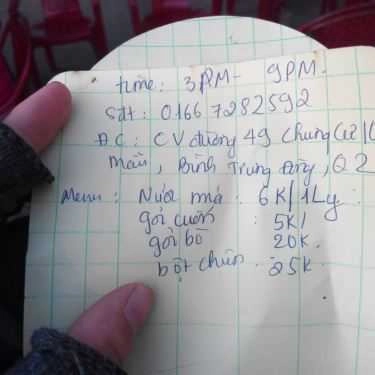 time: 3PM - 9PM.
Sđt: 0166 7282592
ĐC: CV đường 49 Chung Cư
Mẫu, Bình Trưng Đông, Q2
Menu: Nước má : 6K/1Ly
gỏi cuốn : 5K/
gỏi bò 20K.
bột chiên 25K